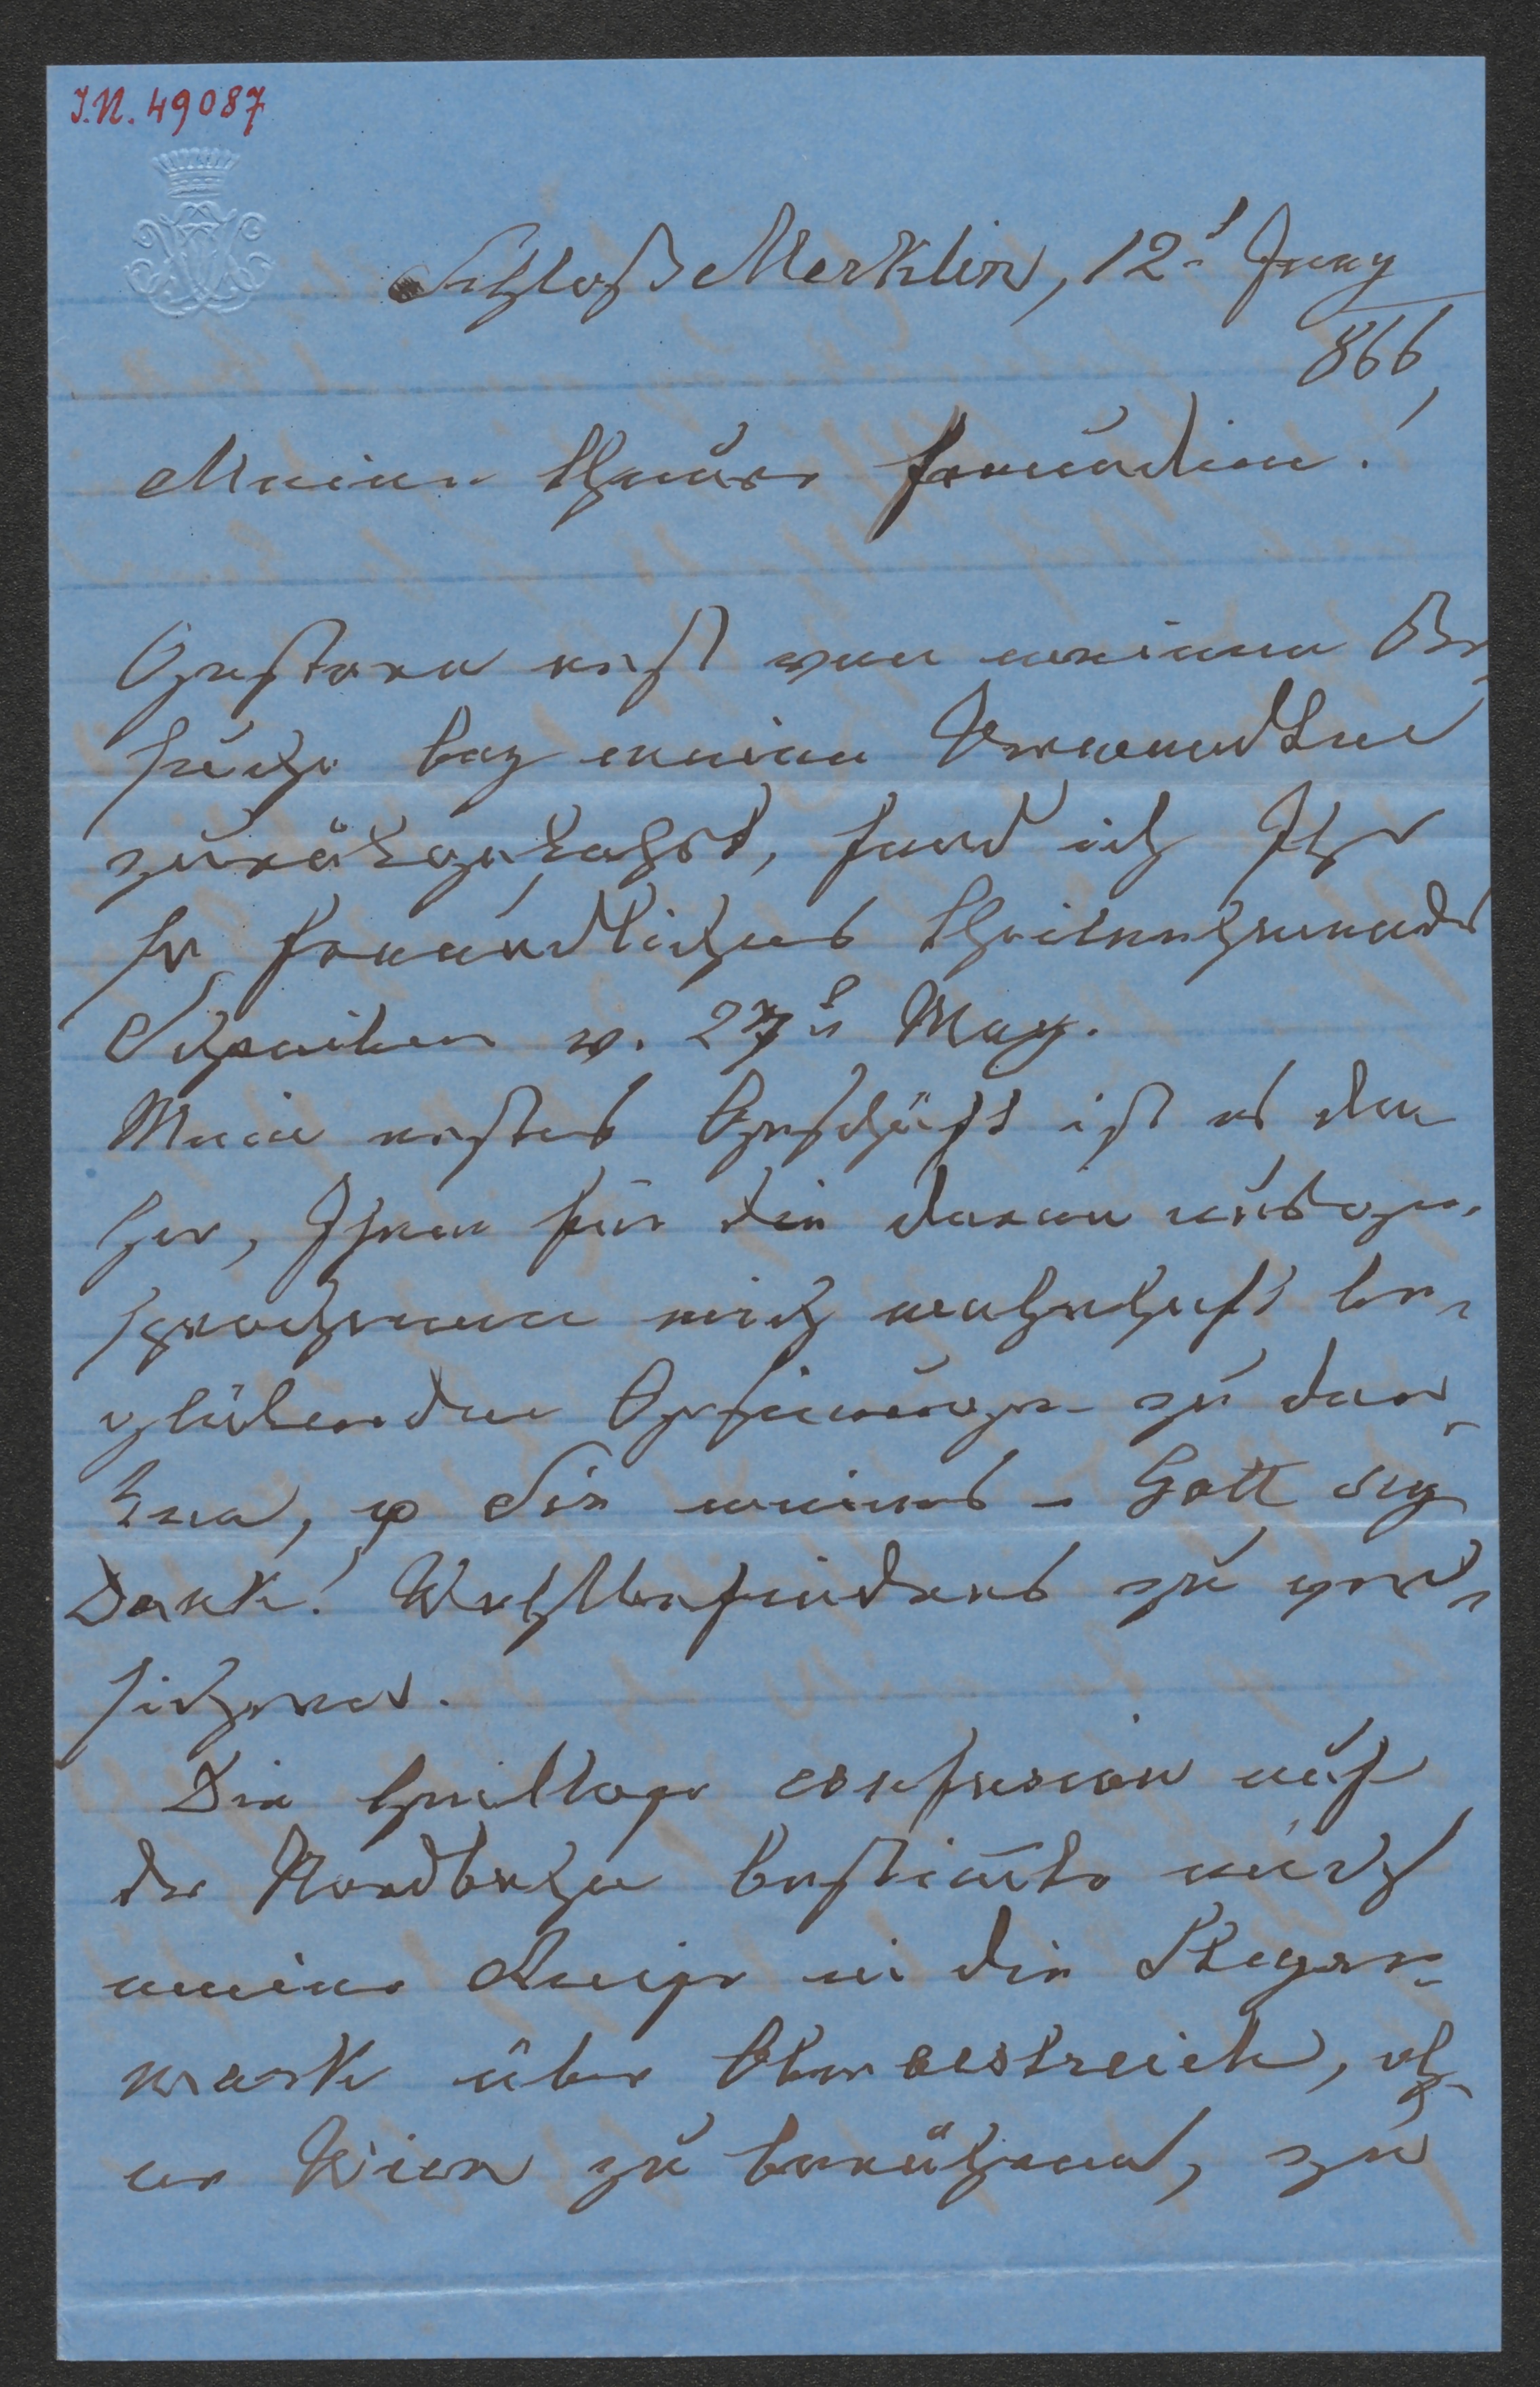 I.N. 49087
Schloß Merklin, 12t Juny
866
Meine theure Freundin!
Gestern erst von meinem Be-
suche bey meinen Verwandten
zurükgekehrt, fand ich Ihr
so freundliches theilnehmendes
Schreiben v. 27t May.
Mein erstes Geschäft ist es da-
her, Ihnen für die darin ausge-
sprochenen mich wahrhaft be-
glükenden Gesinnungen zu dan-
ken, & Sie meines – Gott sey
Dank! Wohlbefindens zu ver-
sichern.
Die heillose confusion auf
der Nordbahn bestimte mich
meine Reise in die Steyer-
mark über Oberoestreich, oh-
ne Wien zu berühren, zu